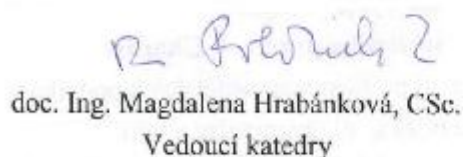 doc. Ing. Magdalena Hrabánková, CSc.
Vedoucí katedry